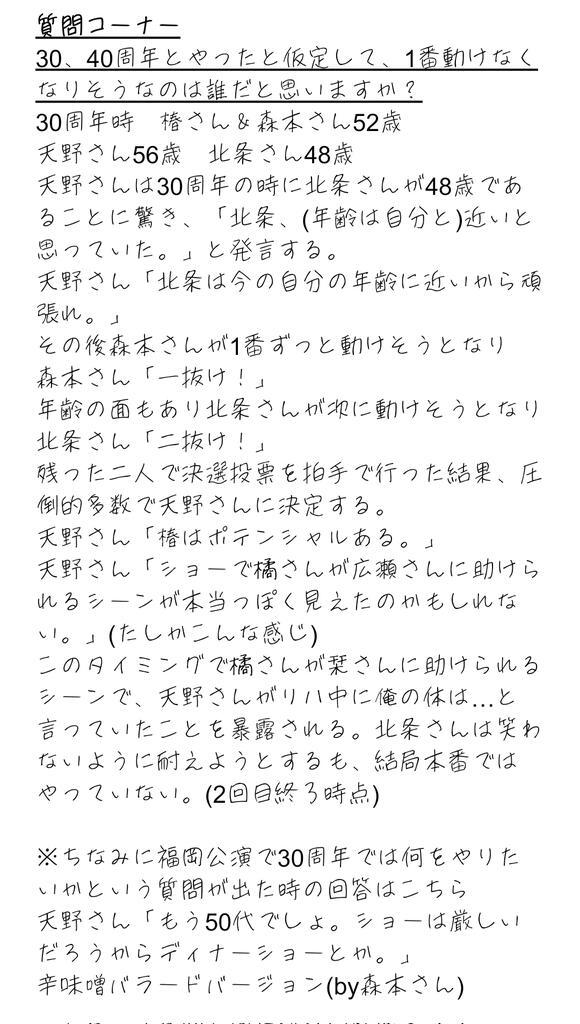 質問コーナー
30、40周年とやったと仮定して、1番動けなく
なりそうなのは誰だと思いますか？
30周年時　椿さん＆森本さん52歳
天野さん56歳　北条さん48歳
天野さんは30周年の時に北条さんが48歳であ
ることに驚き、「北条、(年齢は自分と)近いと
思っていた。」と発言する。
天野さん「北条は今の自分の年齢に近いから頑
張れ。」
その後森本さんが1番ずっと動けそうとなり
森本さん「一抜け！」
年齢の面もあり北条さんが次に動けそうとなり
北条さん「二抜け！」
残った二人で決選投票を拍手で行った結果、圧
倒的多数で天野さんに決定する。
天野さん「椿はポテンシャルある。」
天野さん「ショーで橘さんが広瀬さんに助けら
れるシーンが本当っぽく見えたのかもしれな
い。」(たしかこんな感じ)
このタイミングで橘さんが栞さんに助けられる
シーンで、天野さんがリハ中に俺の体は…と
言っていたことを暴露される。北条さんは笑わ
ないように耐えようとするも、結局本番では
やっていない。(2回目終了時点)
※ちなみに福岡公演で30周年では何をやりた
いかという質問が出た時の回答はこちら
天野さん「もう50代でしょ。ショーは厳しい
だろうからディナーショーとか。」
辛味噌バラードバージョン(by森本さん)